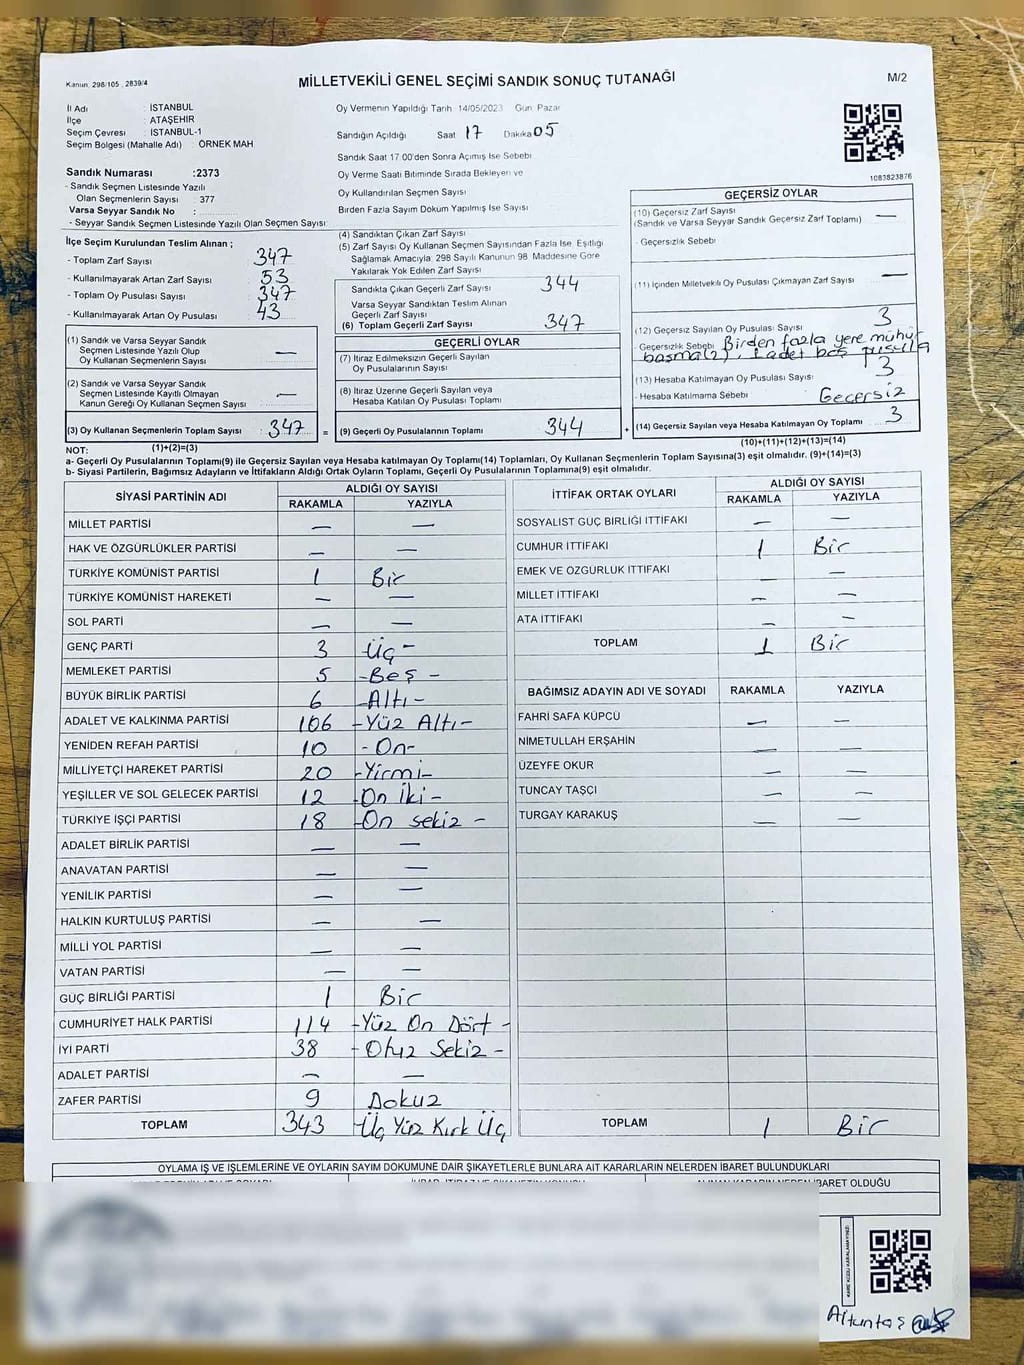 Kanun: 298/105 , 2839/4
MİLLETVEKİLİ GENEL SEÇİMİ SANDIK SONUÇ TUTANAĞI
M/2
İl Adı : İSTANBUL
İlçe : ATAŞEHİR
Seçim Çevresi : İSTANBUL-1
Seçim Bölgesi (Mahalle Adı) : ÖRNEK MAH
Oy Vermenin Yapıldığı Tarih 14/05/2023 Gün Pazar
Sandığın Açıldığı Saat 17 Dakika 05
Sandık Saat 17.00'den Sonra Açımış İse Sebebi
Sandık Numarası :2373
- Sandık Seçmen Listesinde Yazılı
Olan Seçmenlerin Sayısı : 377
Varsa Seyyar Sandık No :
- Seyyar Sandık Seçmen Listesinde Yazılı Olan Seçmen Sayısı
Oy Verme Saati Bitiminde Sırada Bekleyen ve
Oy Kullandırılan Seçmen Sayısı
Birden Fazla Sayım Döküm Yapılmış İse Sayısı
1083823876
İlçe Seçim Kurulundan Teslim Alınan ;
- Toplam Zarf Sayısı 347
- Kullanılmayarak Artan Zarf Sayısı 53
- Toplam Oy Pusulası Sayısı 347
- Kullanılmayarak Artan Oy Pusulası 43
(1) Sandık ve Varsa Seyyar Sandık
Seçmen Listesinde Yazılı Olup
Oy Kullanan Seçmenlerin Sayısı —
(2) Sandık ve Varsa Seyyar Sandık
Seçmen Listesinde Kayıtlı Olmayan
Kanun Gereği Oy Kullanan Seçmen Sayısı —
(3) Oy Kullanan Seçmenlerin Toplam Sayısı 347 =
(1)+(2)=(3)
(4) Sandıktan Çıkan Zarf Sayısı
(5) Zarf Sayısı Oy Kullanan Seçmen Sayısından Fazla İse, Eşitliği
Sağlamak Amacıyla; 298 Sayılı Kanunun 98. Maddesine Göre
Yakılarak Yok Edilen Zarf Sayısı
Sandıkta Çıkan Geçerli Zarf Sayısı 344
Varsa Seyyar Sandıktan Teslim Alınan
Geçerli Zarf Sayısı
(6) Toplam Geçerli Zarf Sayısı 347
GEÇERLİ OYLAR
(7) İtiraz Edilmeksizin Geçerli Sayılan
Oy Pusulalarının Sayısı
(8) İtiraz Üzerine Geçerli Sayılan veya
Hesaba Katılan Oy Pusulası Toplamı
(9) Geçerli Oy Pusulalarının Toplamı 344 +
GEÇERSİZ OYLAR
(10) Geçersiz Zarf Sayısı —
(Sandık ve Varsa Seyyar Sandık Geçersiz Zarf Toplamı)
- Geçersizlik Sebebi
(11) İçinden Milletvekili Oy Pusulası Çıkmayan Zarf Sayısı —
(12) Geçersiz Sayılan Oy Pusulası Sayısı 3
- Geçersizlik Sebebi Birden fazla yere mühür
basma(2), 1 adet boş pusula
(13) Hesaba Katılmayan Oy Pusulası Sayısı 3
- Hesaba Katılmama Sebebi Geçersiz
(14) Geçersiz Sayılan veya Hesaba Katılmayan Oy Toplamı 3
(10)+(11)+(12)+(13)=(14)
NOT:
a- Geçerli Oy Pusulalarının Toplamı(9) ile Geçersiz Sayılan veya Hesaba Katılmayan Oy Toplamı(14) Toplamları, Oy Kullanan Seçmenlerin Toplam Sayısına(3) eşit olmalıdır. (9)+(14)=(3)
b- Siyasi Partilerin, Bağımsız Adayların ve İttifakların Aldığı Ortak Oyların Toplamı, Geçerli Oy Pusulalarının Toplamına(9) eşit olmalıdır.
SİYASİ PARTİNİN ADI ALDIĞI OY SAYISI
RAKAMLA YAZIYLA
MİLLET PARTİSİ — —
HAK VE ÖZGÜRLÜKLER PARTİSİ — —
TÜRKİYE KOMÜNİST PARTİSİ 1 Bir
TÜRKİYE KOMÜNİST HAREKETİ — —
SOL PARTİ — —
GENÇ PARTİ 3 Üç -
MEMLEKET PARTİSİ 5 -Beş -
BÜYÜK BİRLİK PARTİSİ 6 -Altı -
ADALET VE KALKINMA PARTİSİ 106 -Yüz Altı-
YENİDEN REFAH PARTİSİ 10 -On-
MİLLİYETÇİ HAREKET PARTİSİ 20 -Yirmi-
YEŞİLLER VE SOL GELECEK PARTİSİ 12 -On İki -
TÜRKİYE İŞÇİ PARTİSİ 18 -On sekiz -
ADALET BİRLİK PARTİSİ — —
ANAVATAN PARTİSİ — —
YENİLİK PARTİSİ — —
HALKIN KURTULUŞ PARTİSİ — —
MİLLİ YOL PARTİSİ — —
VATAN PARTİSİ — —
GÜÇ BİRLİĞİ PARTİSİ 1 Bir
CUMHURİYET HALK PARTİSİ 114 -Yüz On Dört -
İYİ PARTİ 38 -Otuz Sekiz -
ADALET PARTİSİ — —
ZAFER PARTİSİ 9 Dokuz
TOPLAM 343 -Üç Yüz Kırk Üç
İTTİFAK ORTAK OYLARI ALDIĞI OY SAYISI
RAKAMLA YAZIYLA
SOSYALİST GÜÇ BİRLİĞİ İTTİFAKI — —
CUMHUR İTTİFAKI 1 Bir
EMEK VE ÖZGÜRLÜK İTTİFAKI — —
MİLLET İTTİFAKI — —
ATA İTTİFAKI — —
TOPLAM 1 Bir
BAĞIMSIZ ADAYIN ADI VE SOYADI RAKAMLA YAZIYLA
FAHRİ SAFA KÜPCÜ — —
NİMETULLAH ERŞAHİN — —
ÜZEYFE OKUR — —
TUNCAY TAŞÇI — —
TURGAY KARAKUŞ — —
TOPLAM 1 Bir
OYLAMA İŞ VE İŞLEMLERİNE VE OYLARIN SAYIM DÖKÜMÜNE DAİR ŞİKAYETLERLE BUNLARA AİT KARARLARIN NELERDEN İBARET BULUNDUKLARI
İBARET OLDUĞU
KARE KODU KARALAMAYINIZ!
Altuntaş